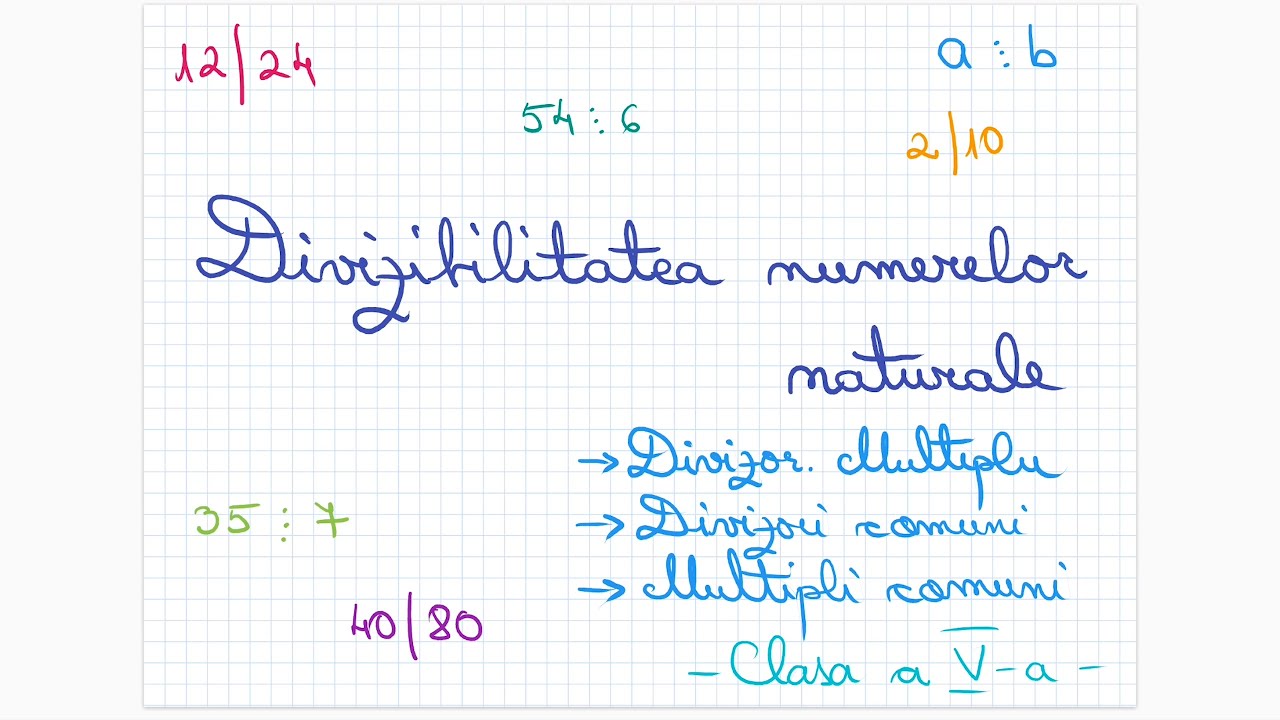 12|24
a ⋮ b
54 ⋮ 6
2|10
Divizibilitatea numerelor
naturale
→ Divizor. Multiplu
35 ⋮ 7
→ Divizori comuni
→ Multipli comuni
40|80
- Clasa a V-a -